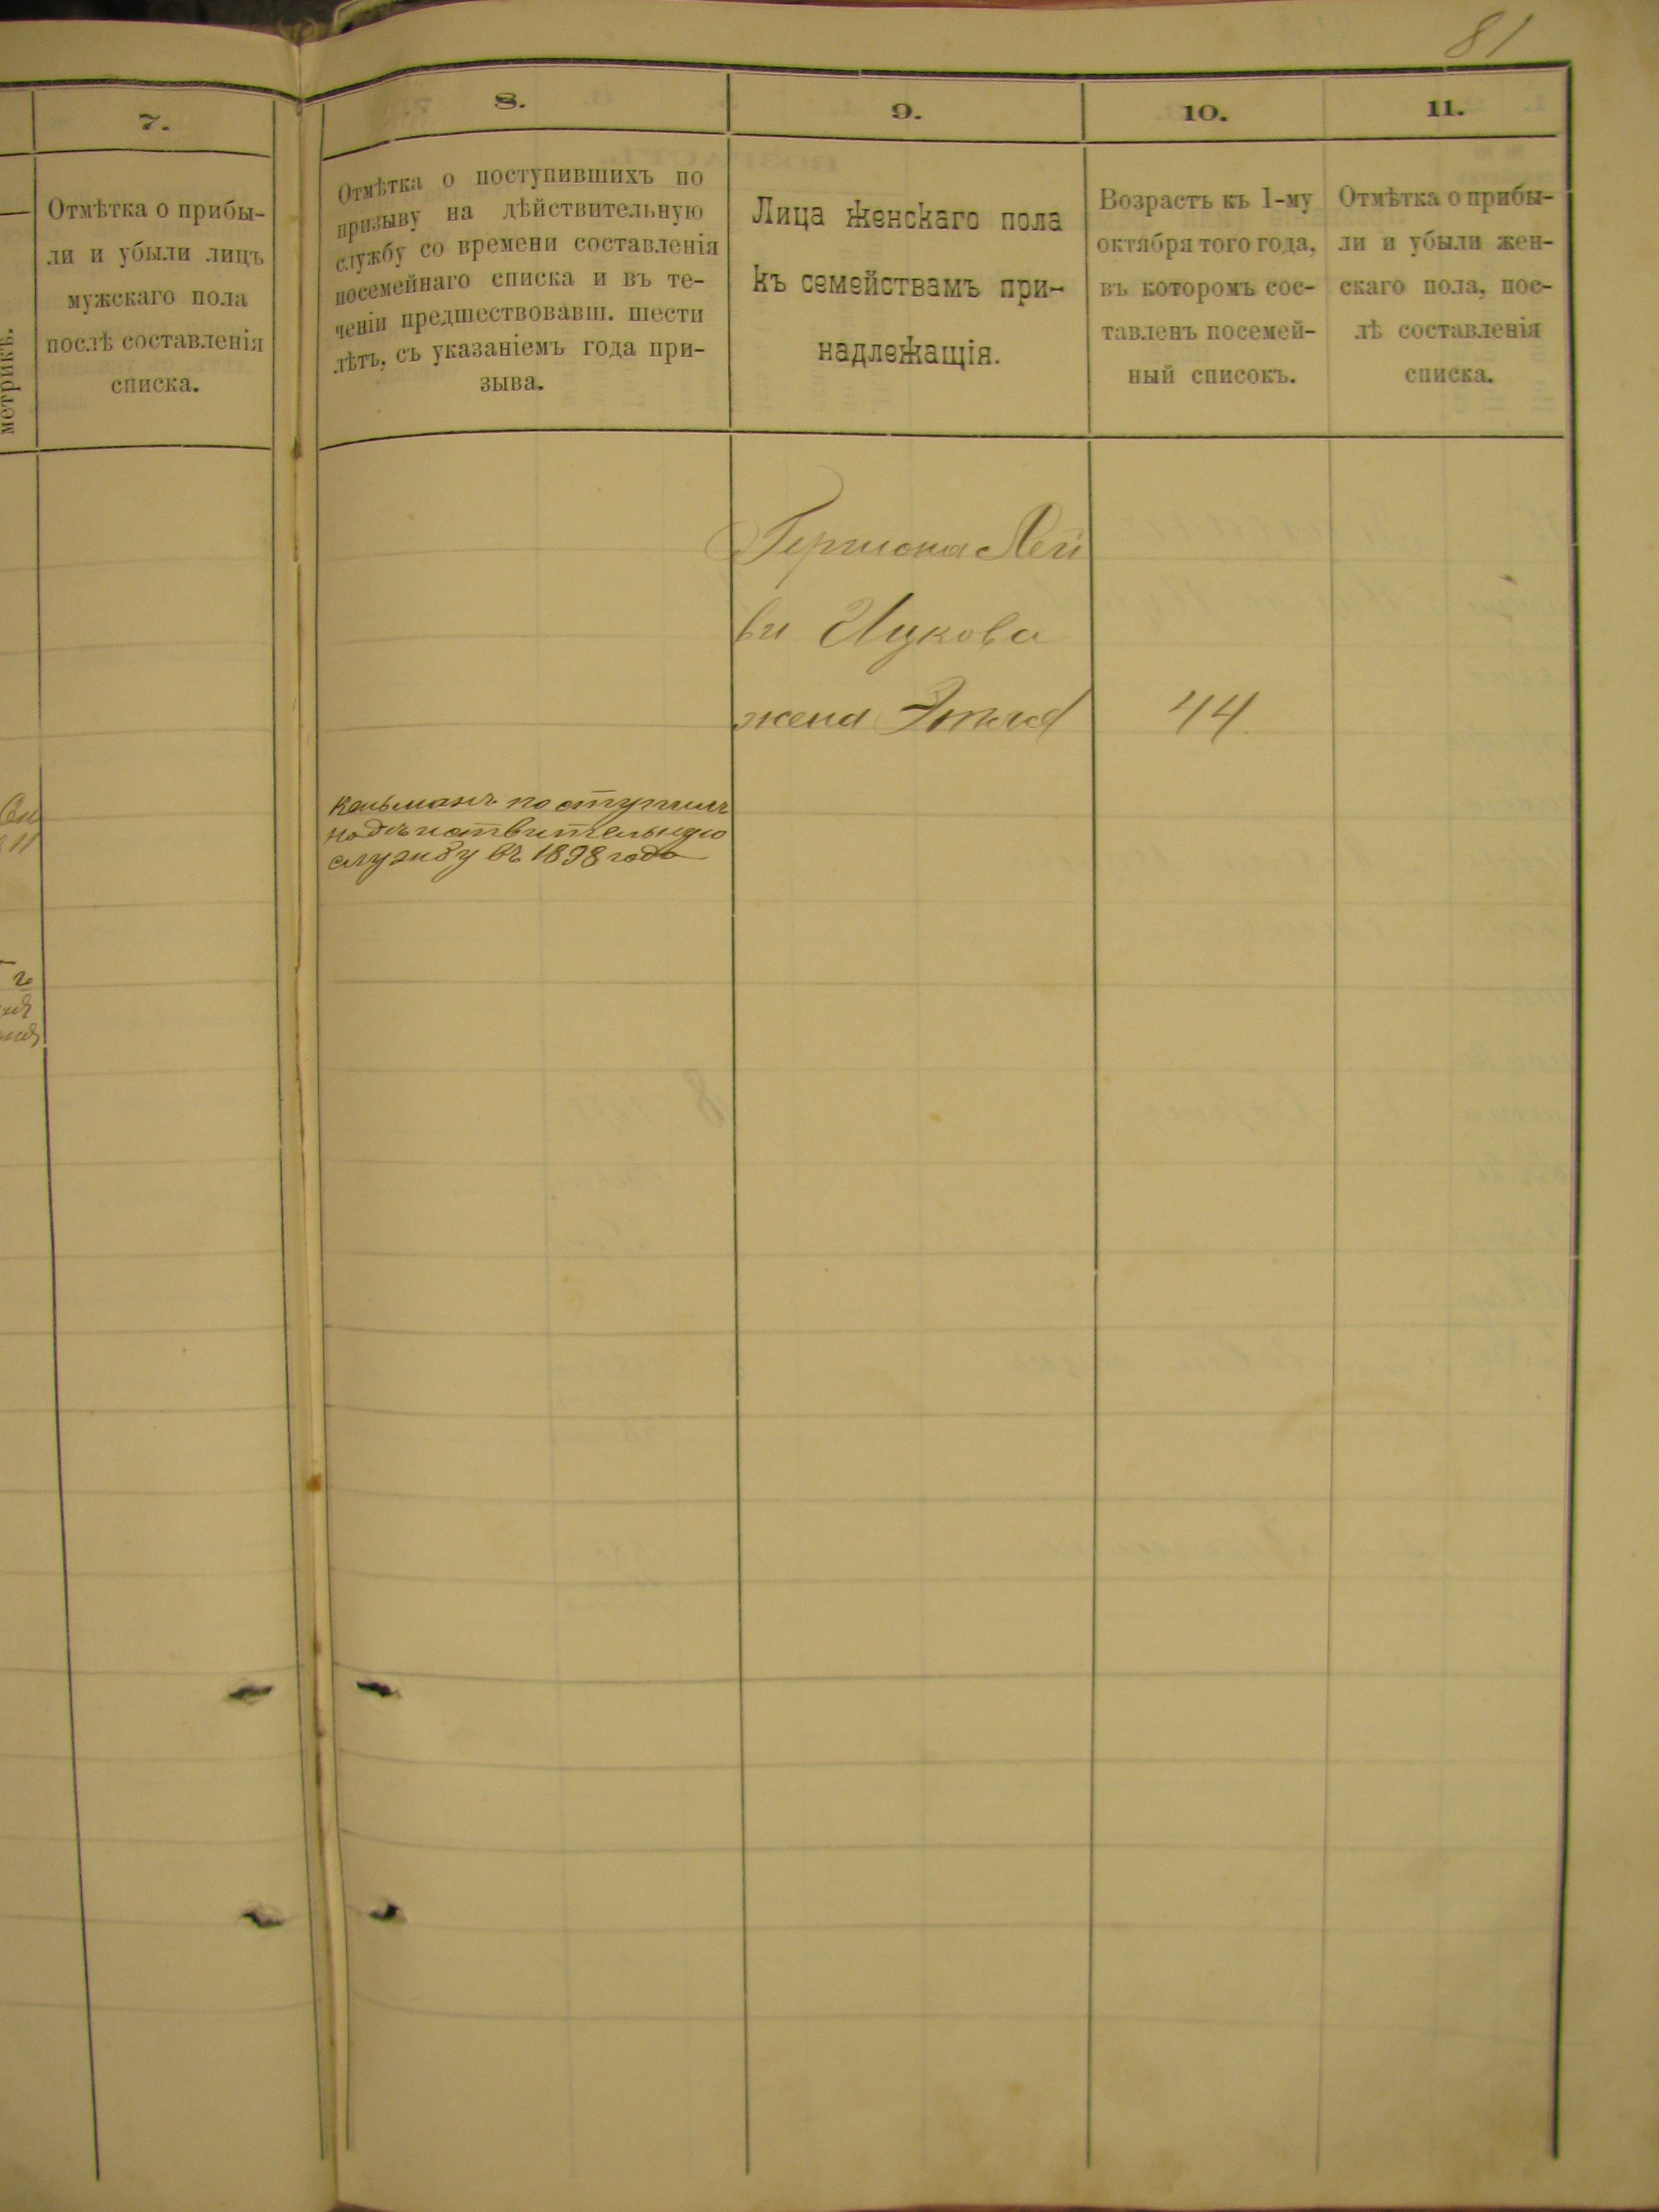 81
7.
Отмѣтка о прибы-
ли и убыли лицъ
мужскаго пола
послѣ составленія
списка.
метрикѣ.
8.
Отмѣтка о поступившихъ по
призыву на дѣйствительную
службу со времени составленія
посемейнаго списка и въ те-
ченіи предшествовавш. шести
лѣтъ, съ указаніемъ года при-
зыва.
9.
Лица женскаго пола
къ семействамъ при-
надлежащія.
10.
Возрастъ къ 1-му
октября того года,
въ которомъ сос-
тавленъ посемей-
ный списокъ.
11.
Отмѣтка о прибы-
ли и убыли жен-
скаго пола, пос-
лѣ составленія
списка.
Гершона Лей
би Ицкова
жена Этля 44
Кальманъ поступилъ
на дѣйствительную
службу въ 1898 года